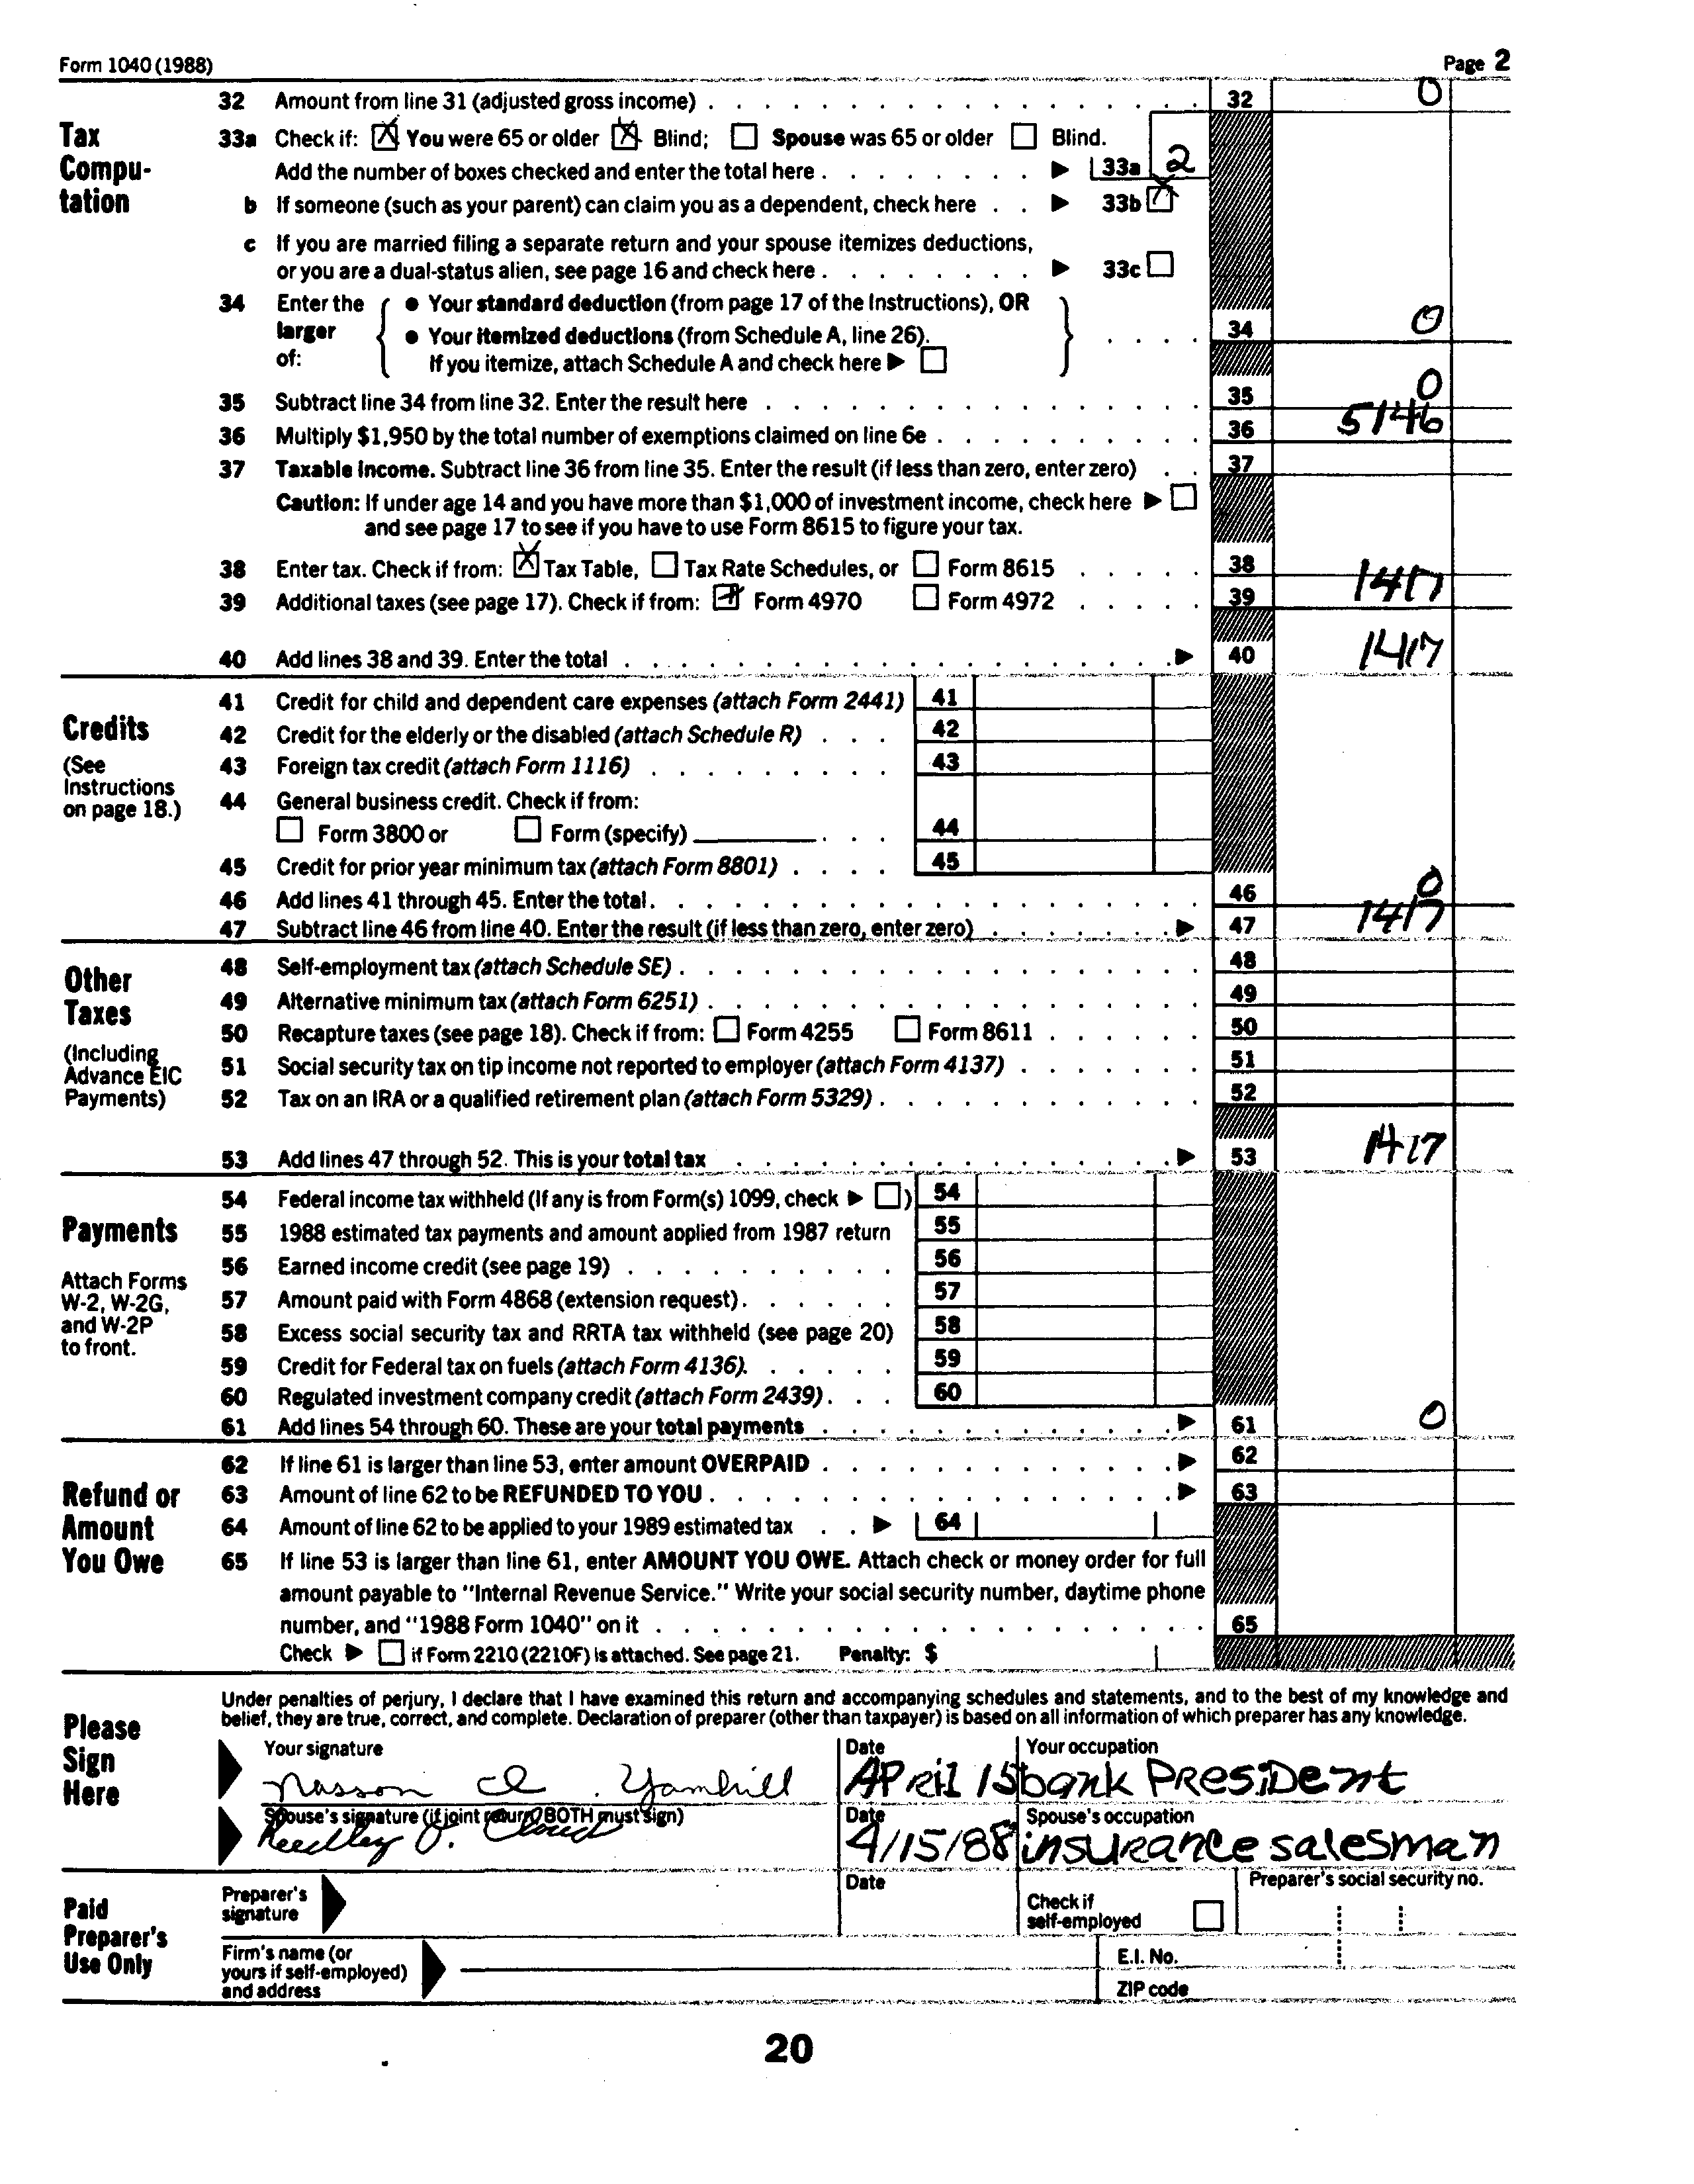 Form 1040 (1988) Page 2
32 Amount from line 31 (adjusted gross income) 32 0
Tax Compu-tation
33a Check if: You were 65 or older Blind; Spouse was 65 or older Blind.
Add the number of boxes checked and enter the total here 33a 2
b If someone (such as your parent) can claim you as a dependent, check here 33b
c If you are married filing a separate return and your spouse itemizes deductions,
or you are a dual-status alien, see page 16 and check here 33c
34 Enter the larger of: • Your standard deduction (from page 17 of the Instructions), OR
• Your itemized deductions (from Schedule A, line 26). 34 0
If you itemize, attach Schedule A and check here
35 Subtract line 34 from line 32. Enter the result here 35 0
36 Multiply $1,950 by the total number of exemptions claimed on line 6e 36 5146
37 Taxable income. Subtract line 36 from line 35. Enter the result (if less than zero, enter zero) 37
Caution: If under age 14 and you have more than $1,000 of investment income, check here
and see page 17 to see if you have to use Form 8615 to figure your tax.
38 Enter tax. Check if from: Tax Table, Tax Rate Schedules, or Form 8615 38
39 Additional taxes (see page 17). Check if from: Form 4970 Form 4972 39 1417
40 Add lines 38 and 39. Enter the total 40 1417
Credits
(See Instructions on page 18.)
41 Credit for child and dependent care expenses (attach Form 2441) 41
42 Credit for the elderly or the disabled (attach Schedule R) 42
43 Foreign tax credit (attach Form 1116) 43
44 General business credit. Check if from:
Form 3800 or Form (specify) 44
45 Credit for prior year minimum tax (attach Form 8801) 45
46 Add lines 41 through 45. Enter the total 46 0
47 Subtract line 46 from line 40. Enter the result (if less than zero, enter zero) 47 1417
Other Taxes
(Including Advance EIC Payments)
48 Self-employment tax (attach Schedule SE) 48
49 Alternative minimum tax (attach Form 6251) 49
50 Recapture taxes (see page 18). Check if from: Form 4255 Form 8611 50
51 Social security tax on tip income not reported to employer (attach Form 4137) 51
52 Tax on an IRA or a qualified retirement plan (attach Form 5329) 52
53 Add lines 47 through 52. This is your total tax 53 1417
Payments
Attach Forms W-2, W-2G, and W-2P to front.
54 Federal income tax withheld (If any is from Form(s) 1099, check ) 54
55 1988 estimated tax payments and amount applied from 1987 return 55
56 Earned income credit (see page 19) 56
57 Amount paid with Form 4868 (extension request) 57
58 Excess social security tax and RRTA tax withheld (see page 20) 58
59 Credit for Federal tax on fuels (attach Form 4136) 59
60 Regulated investment company credit (attach Form 2439) 60
61 Add lines 54 through 60. These are your total payments 61 0
Refund or Amount You Owe
62 If line 61 is larger than line 53, enter amount OVERPAID 62
63 Amount of line 62 to be REFUNDED TO YOU 63
64 Amount of line 62 to be applied to your 1989 estimated tax 64
65 If line 53 is larger than line 61, enter AMOUNT YOU OWE. Attach check or money order for full
amount payable to "Internal Revenue Service." Write your social security number, daytime phone
number, and "1988 Form 1040" on it 65
Check if Form 2210 (2210F) is attached. See page 21. Penalty: $
Please Sign Here
Under penalties of perjury, I declare that I have examined this return and accompanying schedules and statements, and to the best of my knowledge and
belief, they are true, correct, and complete. Declaration of preparer (other than taxpayer) is based on all information of which preparer has any knowledge.
Your signature Date Your occupation
Nasson Yamhill APRil 15 bank PResiDent
Spouse's signature (if joint return, BOTH must sign) Date Spouse's occupation
Reedley J. Cloud 4/15/88 insuRance salesman
Paid Preparer's Use Only
Preparer's signature Date Check if self-employed Preparer's social security no.
Firm's name (or yours if self-employed) and address E.I. No.
ZIP code
20